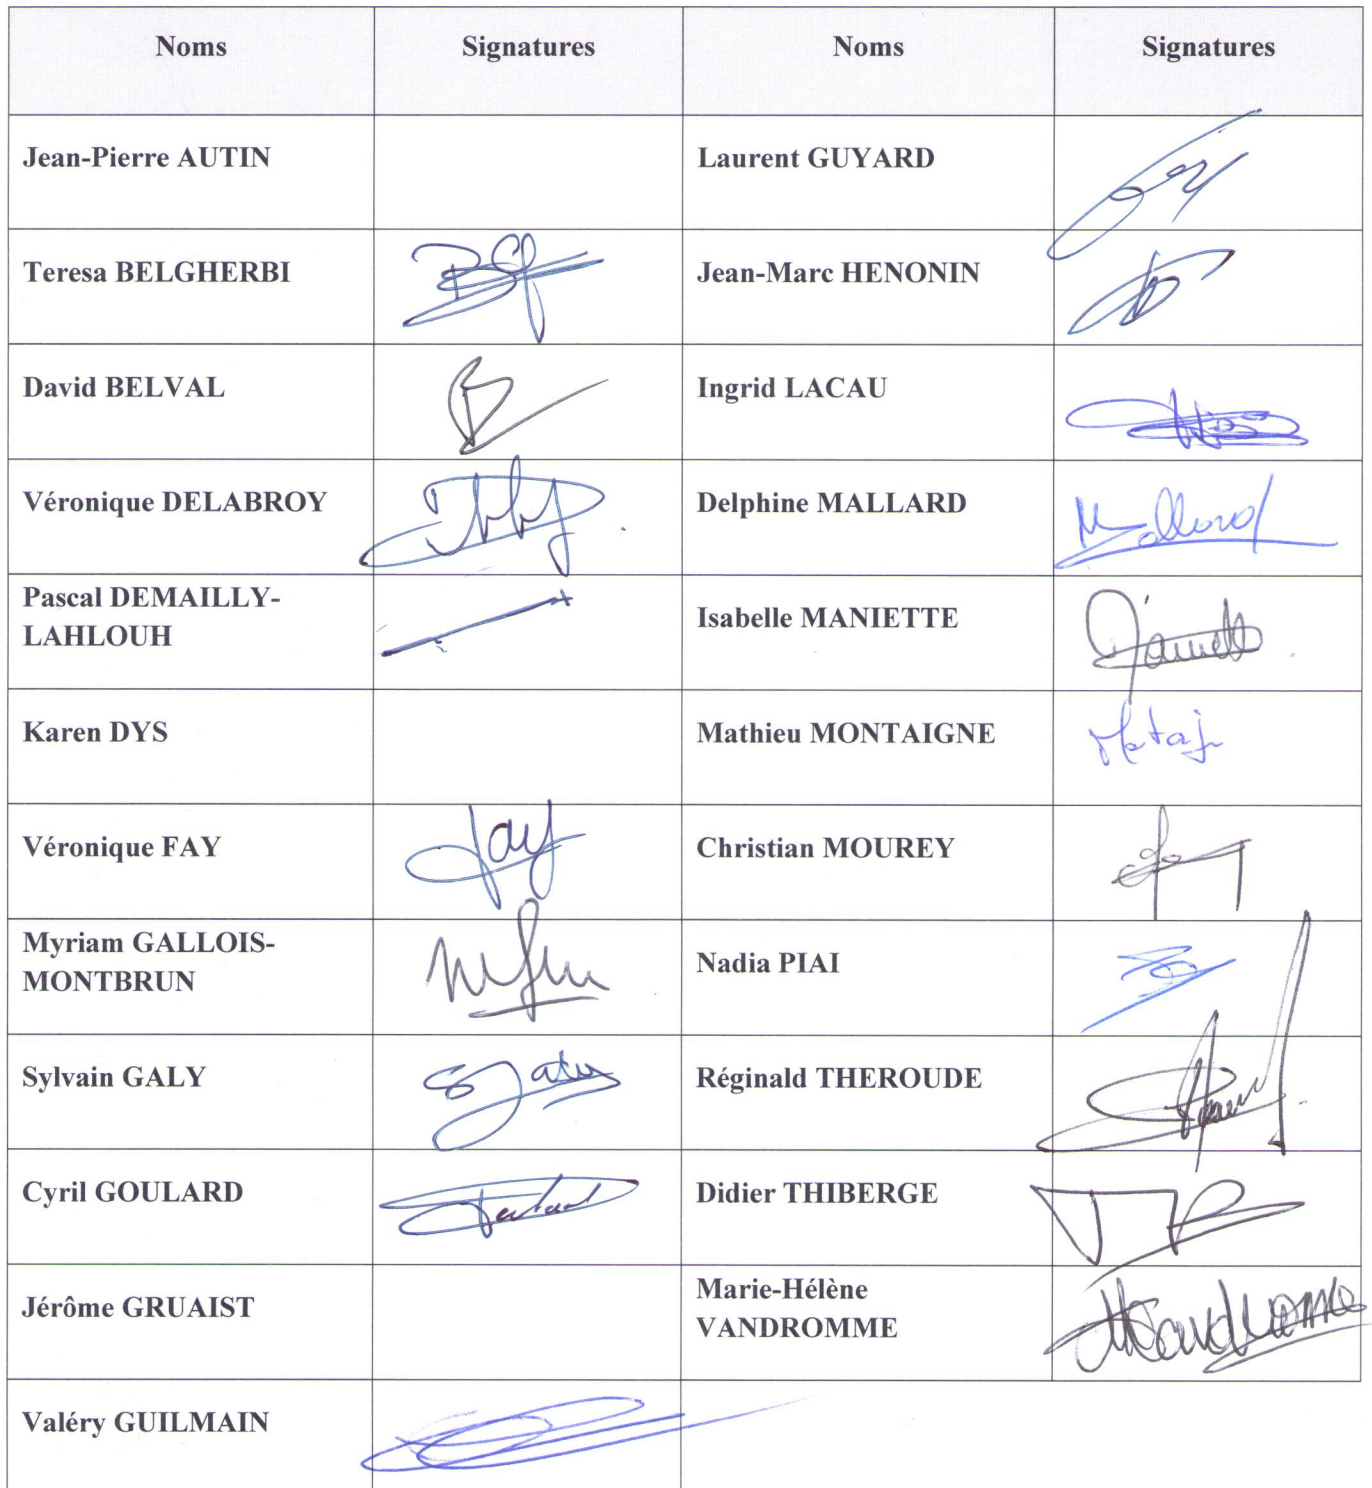 Noms Signatures Noms Signatures
Jean-Pierre AUTIN Laurent GUYARD
Teresa BELGHERBI Jean-Marc HENONIN
David BELVAL Ingrid LACAU
Véronique DELABROY Delphine MALLARD Mallard
Pascal DEMAILLY-
LAHLOUH Isabelle MANIETTE
Karen DYS Mathieu MONTAIGNE
Véronique FAY Fay Christian MOUREY
Myriam GALLOIS-
MONTBRUN Nadia PIAI
Sylvain GALY Réginald THEROUDE
Cyril GOULARD Didier THIBERGE
Jérôme GRUAIST Marie-Hélène
VANDROMME
Valéry GUILMAIN